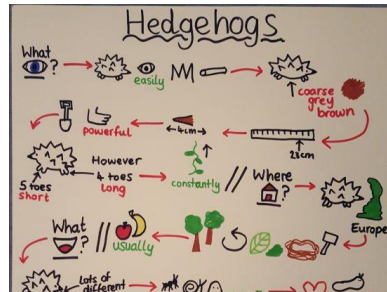 Hedgehogs
What
?
easily
coarse
grey
brown
powerful
4cm
23cm
5 toes
short
However
4 toes
long
constantly
//
Where
?
Europe
What
?
//
usually
Lots of
different